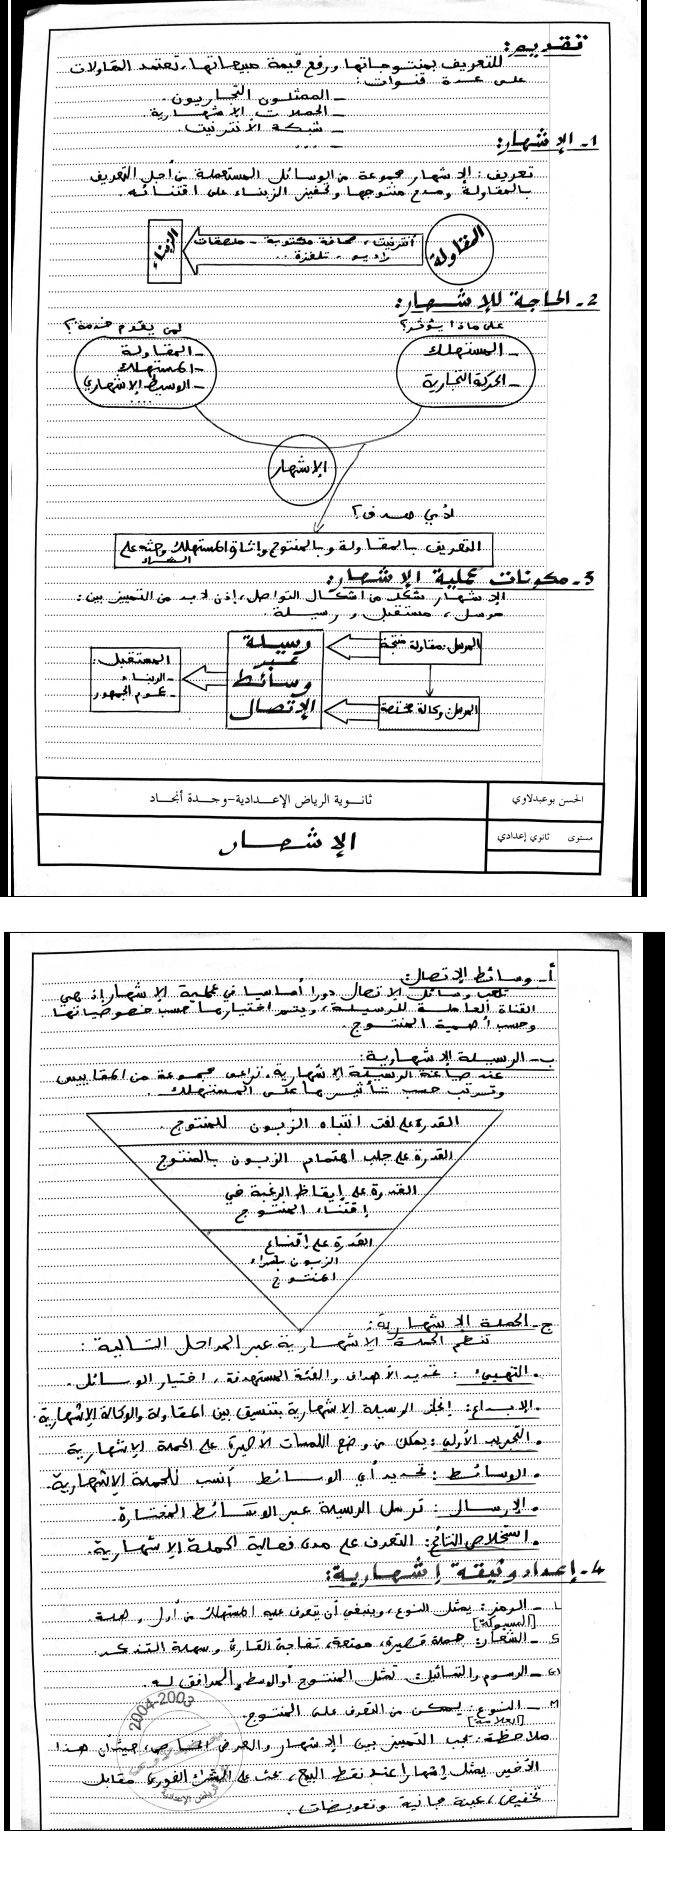 تقديم:
للتعريف بمنتوجاتها ورفع قيمة مبيعاتها، تعتمد المقاولات
على عدة قنوات:
- الممثلون التجاريون.
- الحملات الإشهارية.
- شبكة الأنترنيت.
- ....
1- الإشهار:
تعريف: الإشهار مجموعة من الوسائل المستعملة من أجل التعريف
بالمقاولة ومدح منتوجها وتحفيز الزبناء على اقتنائه.
المقاولة
أنترنيت، صحافة مكتوبة - ملصقات
راديو - تلفزة..
الزبناء
2- الحاجة للإشهار:
على ماذا يؤثر؟
لمن يقدم خدمة؟
- المستهلك
- الحركة التجارية
- المقاولة
- المستهلك
- الوسيط الإشهاري
....
الإشهار
لأي هدف؟
التعريف بالمقاولة وبالمنتوج وإثارة المستهلك وحثه على
الشراء
3- مكونات عملية الإشهار:
الإشهار شكل من أشكال التواصل، إذن لابد من التمييز بين:
مرسل، مستقبل ورسيلة.
المرسل: مقاولة منتجة
المرسل: وكالة مختصة
رسيلة
عبر
وسائط
الإتصال
المستقبل:
- الزبناء
- عموم الجمهور
الحسن بوعبدلاوي
ثانوية الرياض الإعدادية-وجدة أنجاد
مستوى ثانوي إعدادي
الإشهار
أ- وسائط الإتصال:
تلعب وسائل الاتصال دورا أساسيا في عملية الإشهار إذ هي
القناة الحاملة للرسيلة، ويتم اختيارها حسب خصوصياتها
وحسب أهمية المنتوج.
ب- الرسيلة الإشهارية:
عند صياغة الرسيلة الإشهارية، تراعى مجموعة من المقاييس
وترتب حسب تأثيرها على المستهلك.
القدرة على لفت انتباه الزبون للمنتوج.
القدرة على جلب اهتمام الزبون بالمنتوج
القدرة على إيقاظ الرغبة في
إقتناء المنتوج
القدرة على إقناع
الزبون بشراء
المنتوج
ج- الحملة الإشهارية:
تنظم الحملة الإشهارية عبر المراحل التالية:
. التهييء: تحديد الأهداف والفئة المستهدفة، اختيار الوسائل.
. الإبداع: إنجاز الرسيلة الإشهارية بتنسيق بين المقاولة والوكالة الإشهارية.
. التجريب الأولي: يمكن من وضع اللمسات الأخيرة على الحملة الإشهارية
. الوسائط: تحديد أي الوسائط أنسب للحملة الإشهارية.
. الإرسال: ترسل الرسيلة عبر الوسائط المختارة.
. استخلاص النتائج: التعرف على مدى فعالية الحملة الإشهارية.
4- إعداد وثيقة إشهارية:
1- الرمز: يمثل النوع، وينبغي أن يتعرف عليه المستهلك من أول وهلة.
2- الشعار: جملة قصيرة، ممتعة، تفاجئ القارئ وسهلة التذكر.
3- الرسوم والتماثيل: تمثل المنتوج أو الوسط المرافق له.
4- النوع: يمكن من التعرف على المنتوج.
[العلامة]
ملاحظة: يجب التمييز بين الإشهار والعرض الخاص، حيث أن هذا
الأخير يمثل إشهارا عند نقط البيع، يحث على الشراء الفوري مقابل
تخفيض، عينة مجانية وتعويضات.
2004-2003